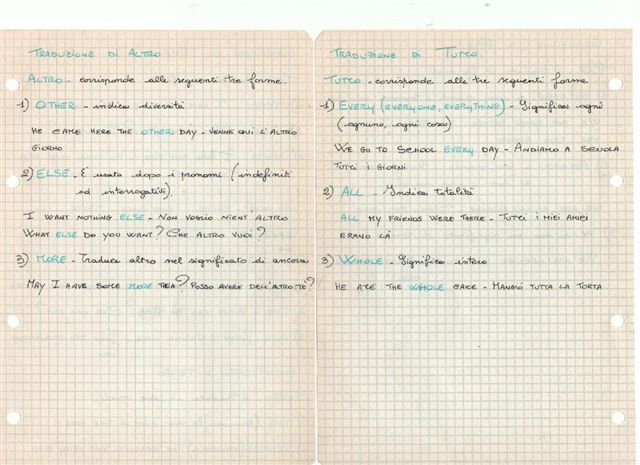 TRADUZIONE DI ALTRO
ALTRO - corrisponde alle seguenti tre forme.
1) OTHER - indica diversità
HE CAME HERE THE OTHER DAY - VENNE QUI L'ALTRO
GIORNO
2) ELSE - È usato dopo i pronomi (indefiniti
ed interrogativi).
I WANT NOTHING ELSE - NON VOGLIO NIENT'ALTRO
WHAT ELSE DO YOU WANT? CHE ALTRO VUOI?
3) MORE - Traduce altro nel significato di ancora
MAY I HAVE SOME MORE TEA? POSSO AVERE DELL'ALTRO TÈ?
TRADUZIONE DI TUTTO
TUTTO - corrisponde alle tre seguenti forme
1) EVERY (EVERYONE, EVERYTHING) - Significa ogni
(ognuno, ogni cosa)
WE GO TO SCHOOL EVERY DAY - ANDIAMO A SCUOLA
TUTTI I GIORNI
2) ALL - Indica totalità
ALL MY FRIENDS WERE THERE - TUTTI I MIEI AMICI
ERANO LÀ
3) WHOLE - Significa intero
HE ATE THE WHOLE CAKE - MANGIÒ TUTTA LA TORTA